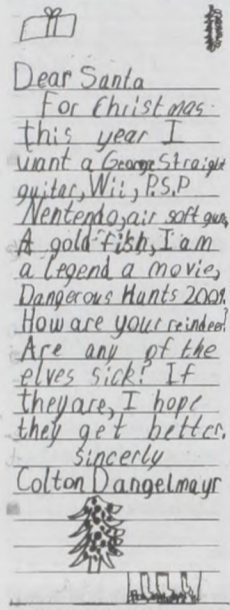 Dear Santa
For Christmas
this year I
want a George Straight
guitar, Wii, P.S.P
Nentendo, air soft gun,
A gold fish, I am
a legend a movie,
Dangerous Hunts 2009.
How are your reindeer?
Are any of the
elves sick? If
they are, I hope
they get better.
sincerly
Colton Dangelmayr